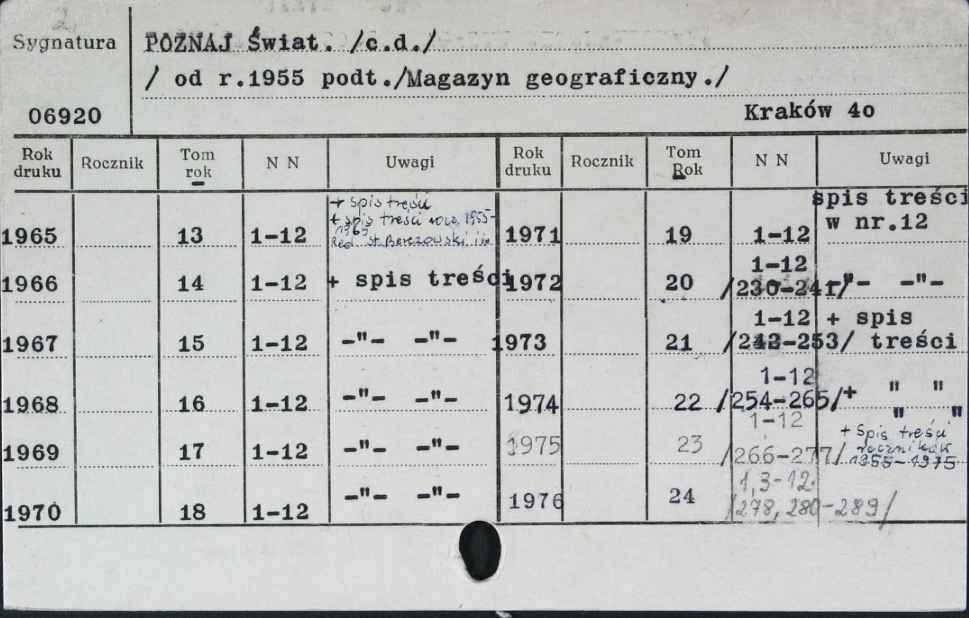 2
Sygnatura
POZNAJ Świat. /c.d./
/ od r.1955 podt./Magazyn geograficzny./
06920
Kraków 4o
Rok druku Rocznik Tom rok N N Uwagi Rok druku Rocznik Tom Rok N N Uwagi
1965 13 1-12 + spis treści
+ spis treści rocz. 1955-
1965
Red. St. Berezowski i in
1971 19 1-12 spis treści
w nr.12
1966 14 1-12 + spis treści 1972 20 1-12
/230-241/ -"- -"-
1967 15 1-12 -"- -"- 1973 21 1-12 + spis
/242-253/ treści
1968 16 1-12 -"- -"- 1974 22 1-12
/254-265/ + " "
" "
1969 17 1-12 -"- -"- 1975 23 1-12
/266-277/ + spis treści
roczników
1955-1975
1970 18 1-12 -"- -"- 1976 24 1,3-12.
/278, 280-289/